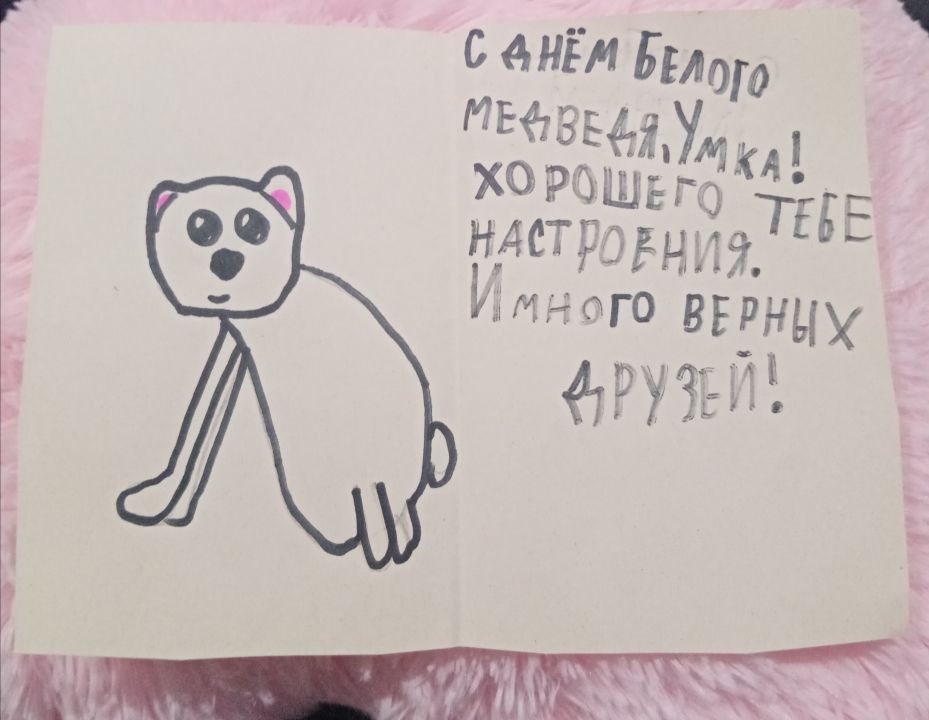 С ДНЁМ БЕЛОГО
МЕДВЕДЯ, УМКА!
ХОРОШЕГО ТЕБЕ
НАСТРОЕНИЯ.
И МНОГО ВЕРНЫХ
ДРУЗЕЙ!